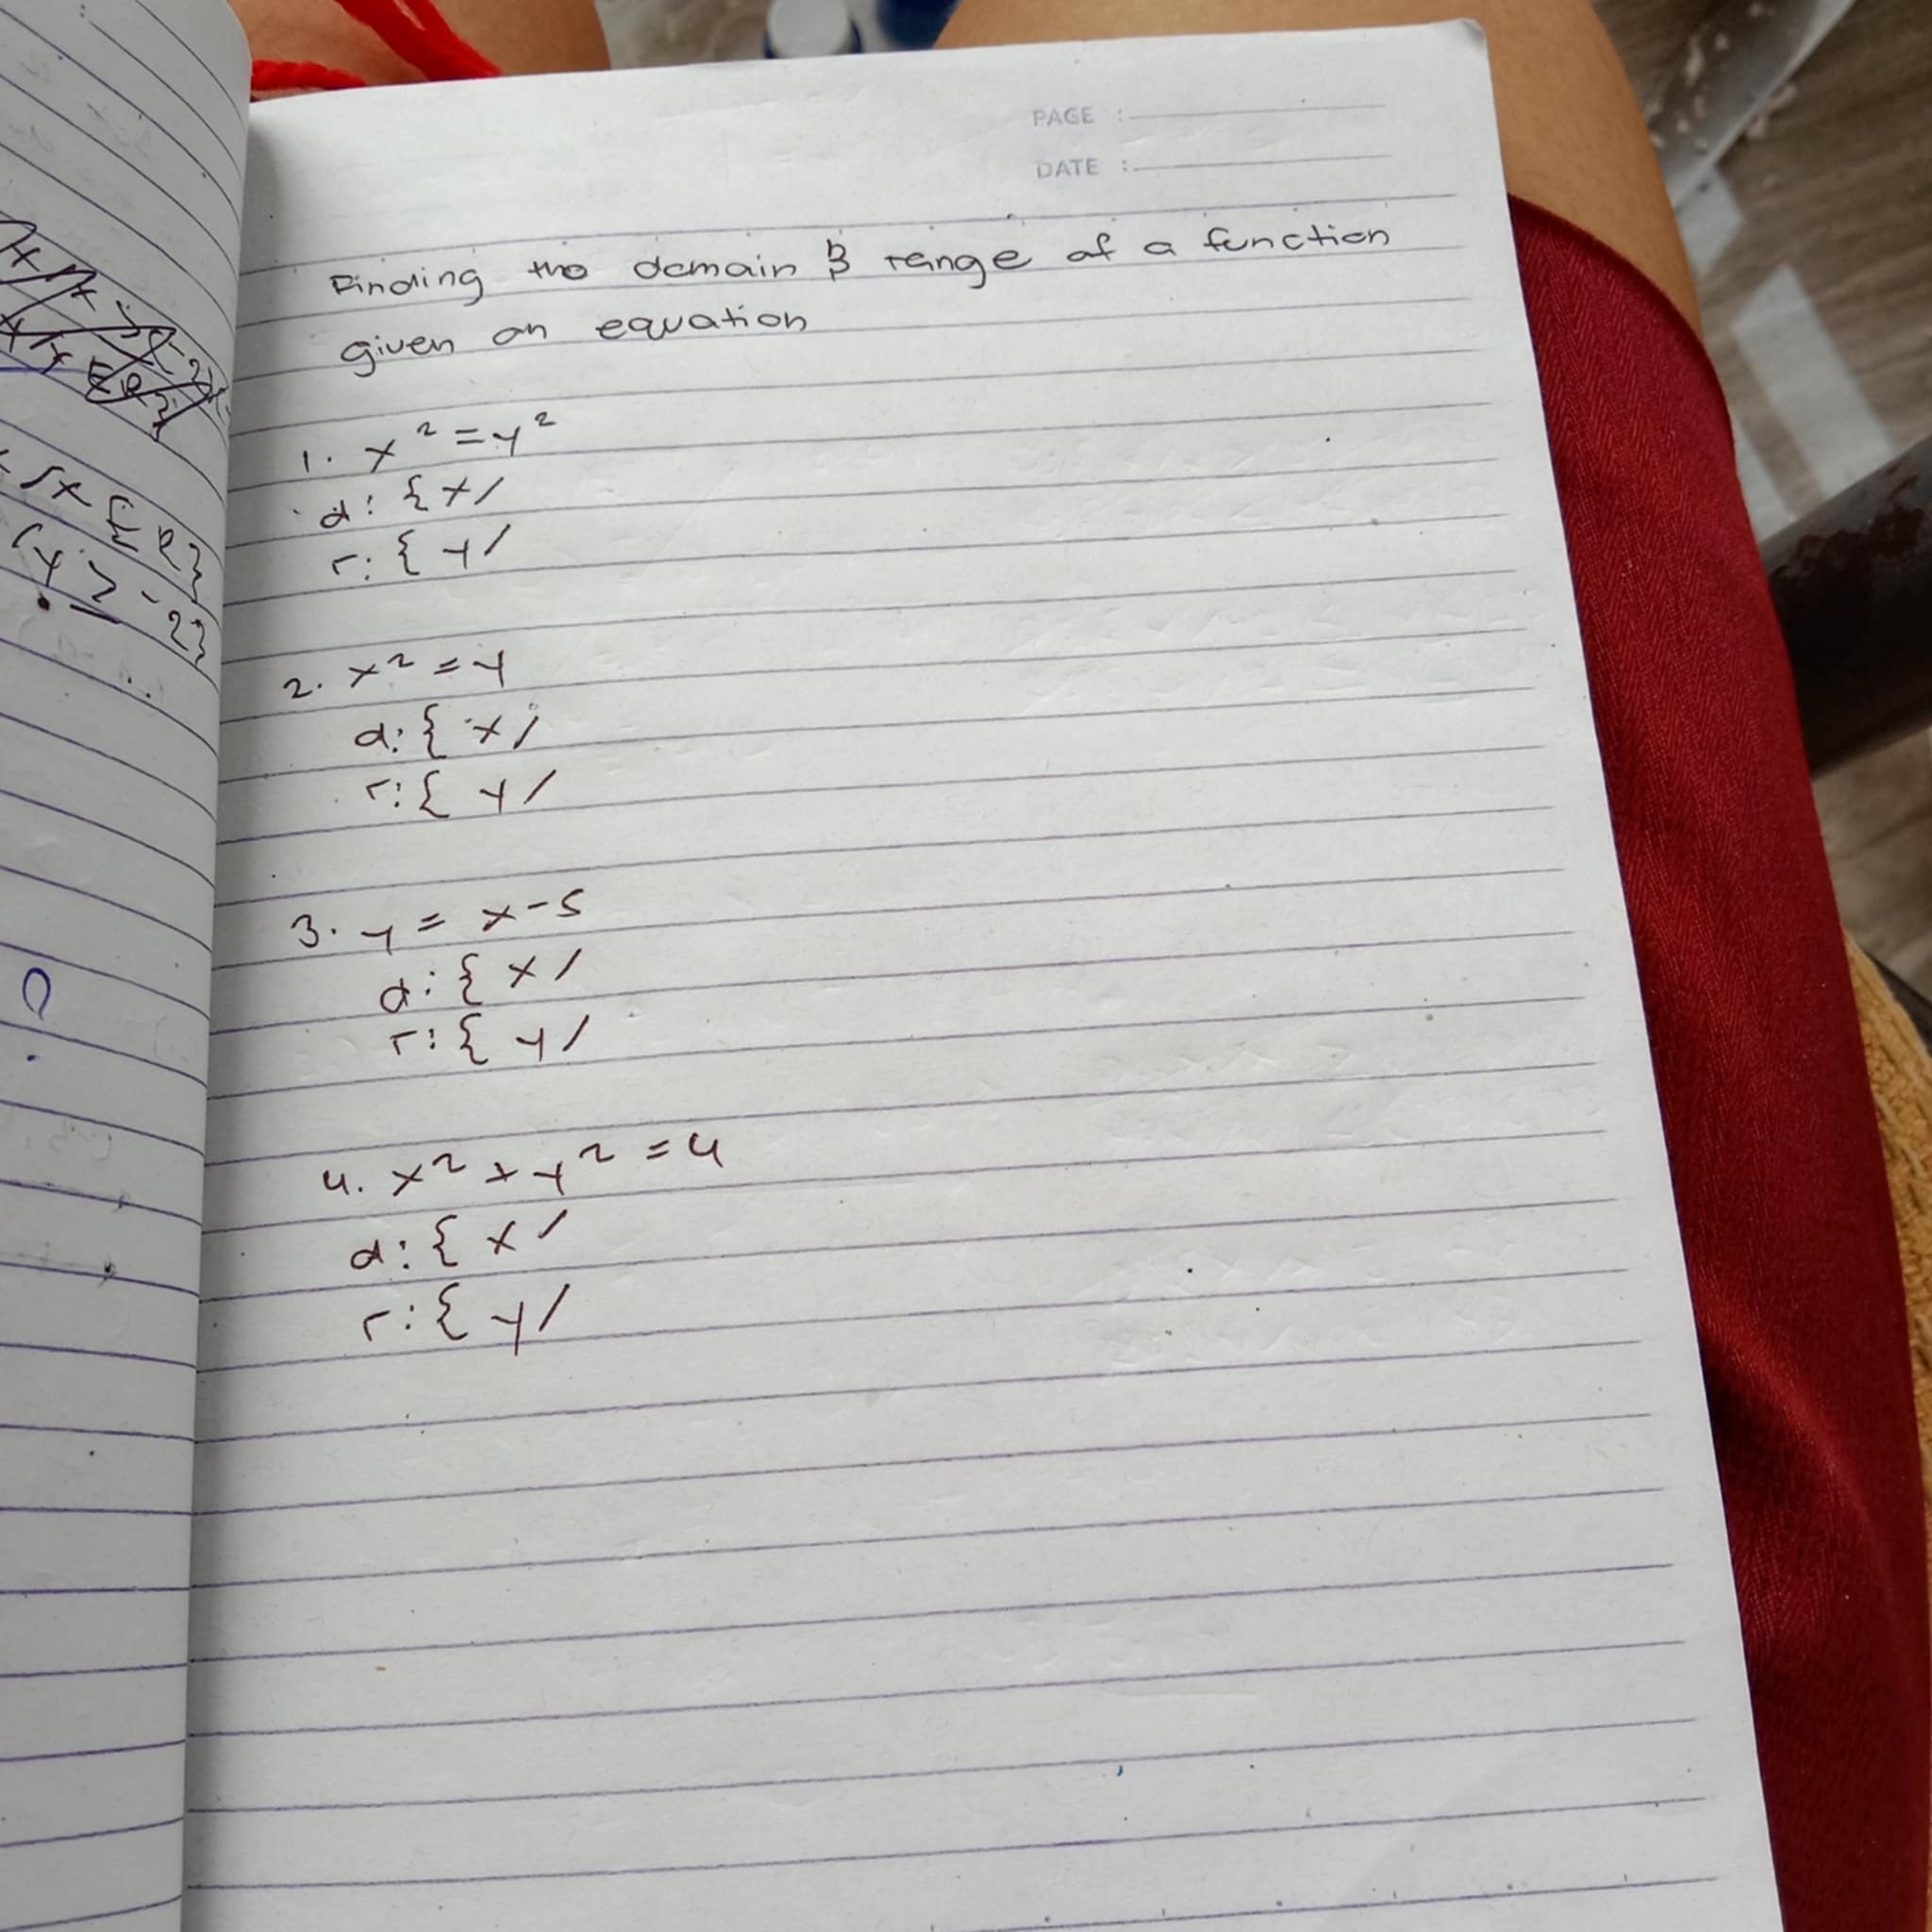 PAGE :
DATE :
Finding the domain & range of a function
given an equation
1. x² = y²
d: {x/
r: { y/
2. x² = y
d: { x/
r: { y/
3. y = x-5
d: { x/
r: { y/
4. x² + y² = 4
d: { x/
r: { y/